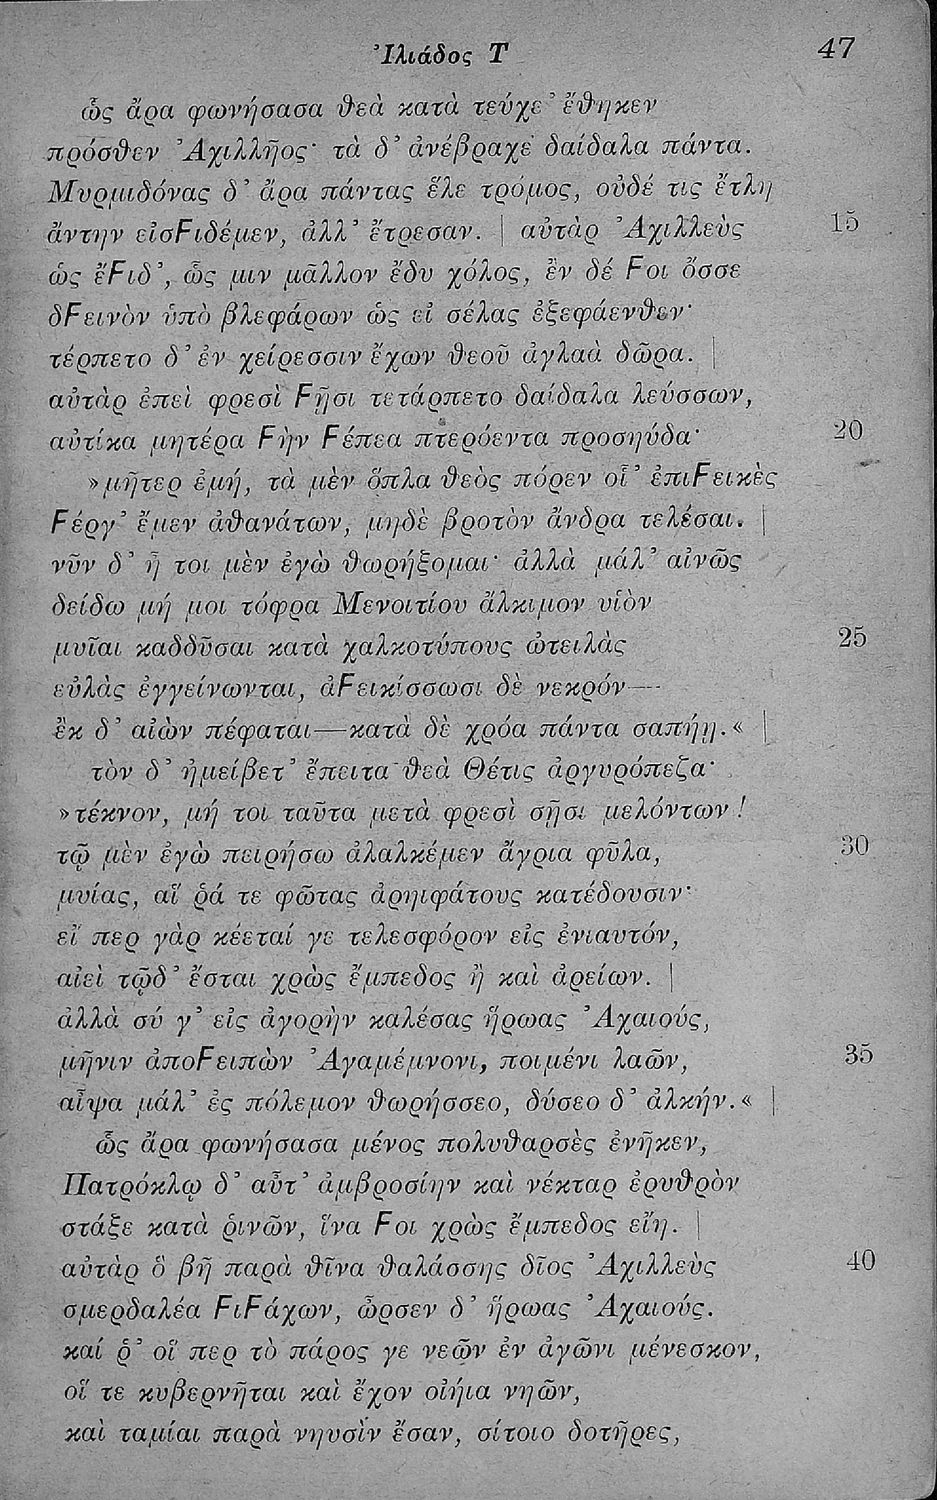 Ἰλιάδος Τ 47
ὣς ἄρα φωνήσασα θεὰ κατὰ τεύχε' ἔθηκεν
πρόσθεν Ἀχιλλῆος· τὰ δ' ἀνέβραχε δαίδαλα πάντα.
Μυρμιδόνας δ' ἄρα πάντας ἕλε τρόμος, οὐδέ τις ἔτλη
ἄντην εἰσϜιδέμεν, ἀλλ' ἔτρεσαν. | αὐτὰρ Ἀχιλλεὺς 15
ὡς ἔϜιδ', ὥς μιν μᾶλλον ἔδυ χόλος, ἐν δέ Ϝοι ὄσσε
δϜεινὸν ὑπὸ βλεφάρων ὡς εἰ σέλας ἐξεφάενθεν·
τέρπετο δ' ἐν χείρεσσιν ἔχων θεοῦ ἀγλαὰ δῶρα. |
αὐτὰρ ἐπεὶ φρεσὶ Ϝῇσι τετάρπετο δαίδαλα λεύσσων,
αὐτίκα μητέρα Ϝὴν Ϝέπεα πτερόεντα προσηύδα· 20
»μῆτερ ἐμή, τὰ μὲν ὅπλα θεὸς πόρεν οἷ' ἐπιϜεικὲς
Ϝέργ' ἔμεν ἀθανάτων, μηδὲ βροτὸν ἄνδρα τελέσαι. |
νῦν δ' ἦ τοι μὲν ἐγὼ θωρήξομαι· ἀλλὰ μάλ' αἰνῶς
δείδω μή μοι τόφρα Μενοιτίου ἄλκιμον υἱὸν
μυῖαι καδδῦσαι κατὰ χαλκοτύπους ὠτειλὰς 25
εὐλὰς ἐγγείνωνται, ἀϜεικίσσωσι δὲ νεκρόν—
ἐκ δ' αἰὼν πέφαται—κατὰ δὲ χρόα πάντα σαπήῃ.« |
τὸν δ' ἠμείβετ' ἔπειτα θεὰ Θέτις ἀργυρόπεζα·
»τέκνον, μή τοι ταῦτα μετὰ φρεσὶ σῇσι μελόντων!
τῷ μὲν ἐγὼ πειρήσω ἀλαλκέμεν ἄγρια φῦλα, 30
μυίας, αἵ ῥά τε φῶτας ἀρηιφάτους κατέδουσιν·
εἴ περ γὰρ κέεταί γε τελεσφόρον εἰς ἐνιαυτόν,
αἰεὶ τῷδ' ἔσται χρὼς ἔμπεδος ἢ καὶ ἀρείων. |
ἀλλὰ σύ γ' εἰς ἀγορὴν καλέσας ἥρωας Ἀχαιούς,
μῆνιν ἀποϜειπὼν Ἀγαμέμνονι, ποιμένι λαῶν, 35
αἶψα μάλ' ἐς πόλεμον θωρήσσεο, δύσεο δ' ἀλκήν.« |
ὣς ἄρα φωνήσασα μένος πολυθαρσὲς ἐνῆκεν,
Πατρόκλῳ δ' αὖτ' ἀμβροσίην καὶ νέκταρ ἐρυθρὸν
στάξε κατὰ ῥινῶν, ἵνα Ϝοι χρὼς ἔμπεδος εἴη. |
αὐτὰρ ὃ βῆ παρὰ θῖνα θαλάσσης δῖος Ἀχιλλεὺς 40
σμερδαλέα ϜιϜάχων, ὦρσεν δ' ἥρωας Ἀχαιούς.
καί ῥ' οἵ περ τὸ πάρος γε νεῶν ἐν ἀγῶνι μένεσκον,
οἵ τε κυβερνῆται καὶ ἔχον οἰήια νηῶν,
καὶ ταμίαι παρὰ νηυσὶν ἔσαν, σίτοιο δοτῆρες,